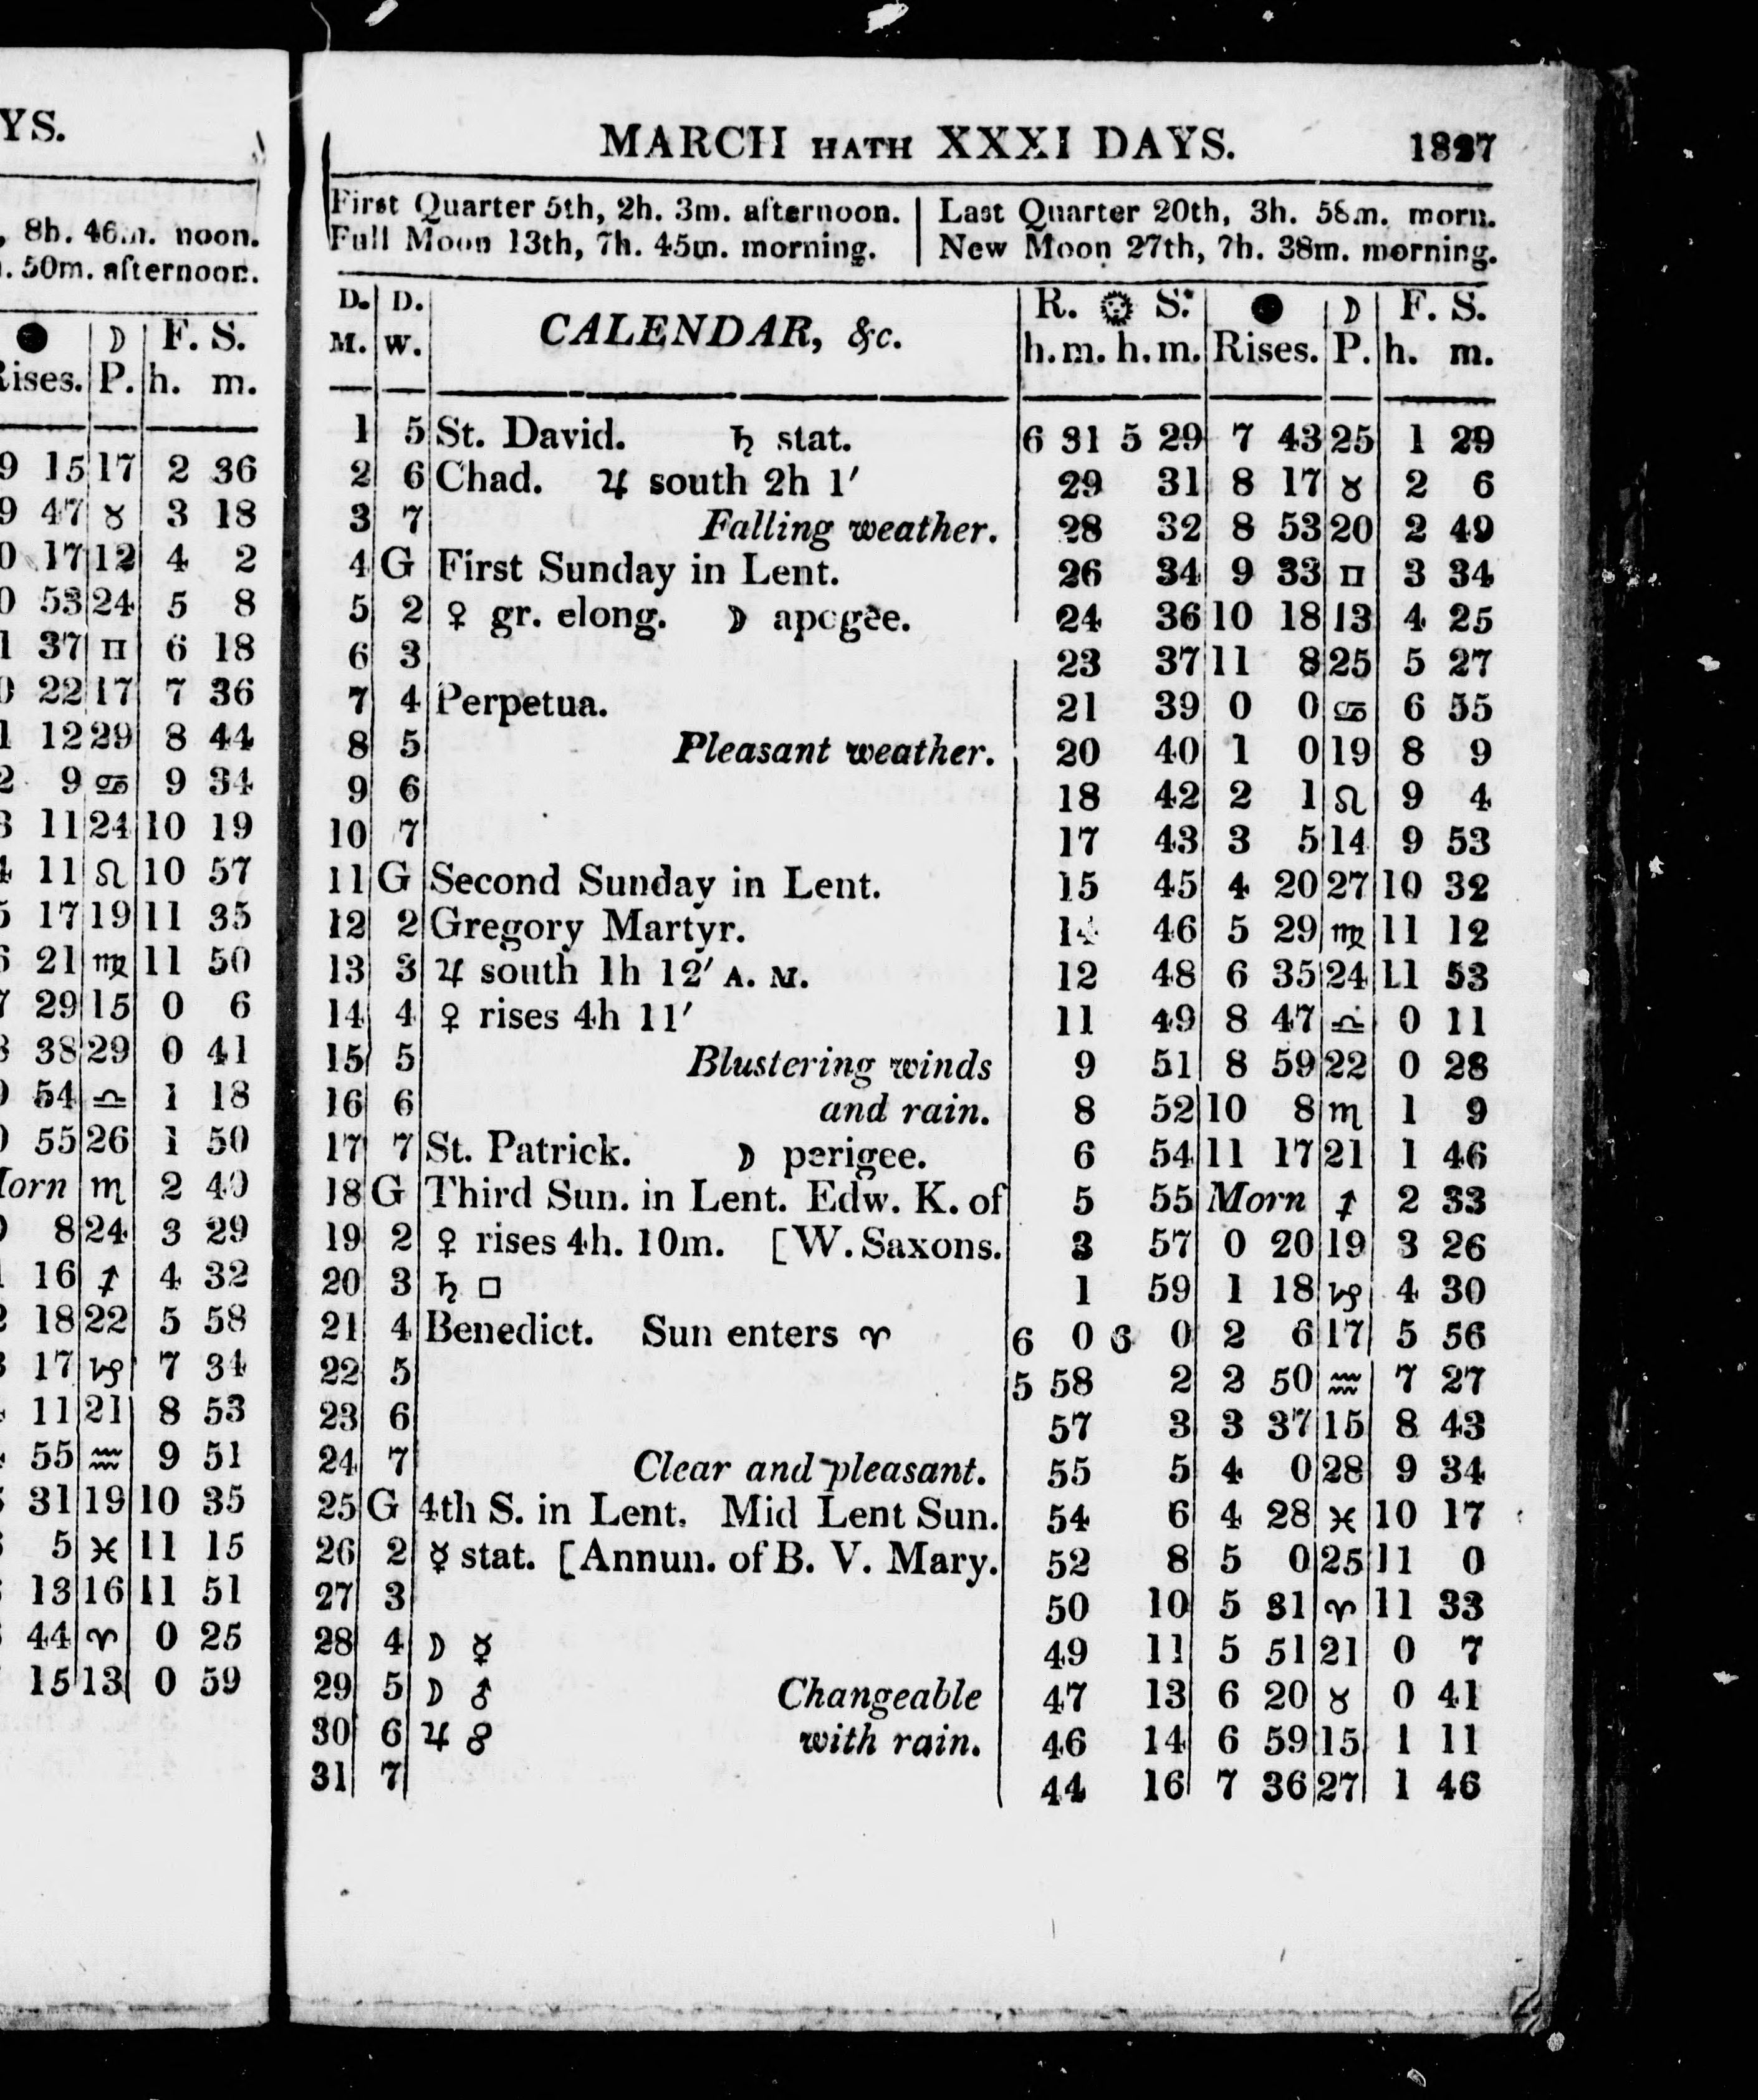 YS.
, 8h. 46m. noon.
. 50m. afternoon.
● ☽ F. S.
Rises. P. h. m.
9 15 17 2 36
9 47 ♉ 3 18
0 17 12 4 2
0 53 24 5 8
1 37 ♊ 6 18
0 22 17 7 36
1 12 29 8 44
2 9 ♋ 9 34
3 11 24 10 19
4 11 ♌ 10 57
5 17 19 11 35
6 21 ♍ 11 50
7 29 15 0 6
8 38 29 0 41
9 54 ♎ 1 18
0 55 26 1 50
Morn ♏ 2 40
0 8 24 3 29
1 16 ♐ 4 32
2 18 22 5 58
3 17 ♑ 7 34
4 11 21 8 53
4 55 ♒ 9 51
5 31 19 10 35
5 ♓ 11 15
13 16 11 51
44 ♈ 0 25
15 13 0 59
MARCH HATH XXXI DAYS. 1827
First Quarter 5th, 2h. 3m. afternoon. | Last Quarter 20th, 3h. 58m. morn.
Full Moon 13th, 7h. 45m. morning. | New Moon 27th, 7h. 38m. morning.
D. D. R. ☼ S. ● ☽ F. S.
M. W. CALENDAR, &c. h. m. h. m. Rises. P. h. m.
1 5 St. David. ♄ stat. 6 31 5 29 7 43 25 1 29
2 6 Chad. ♃ south 2h 1′ 29 31 8 17 ♉ 2 6
3 7 Falling weather. 28 32 8 53 20 2 49
4 G First Sunday in Lent. 26 34 9 33 ♊ 3 34
5 2 ♀ gr. elong. ☽ apogee. 24 36 10 18 13 4 25
6 3 23 37 11 8 25 5 27
7 4 Perpetua. 21 39 0 0 ♋ 6 55
8 5 Pleasant weather. 20 40 1 0 19 8 9
9 6 18 42 2 1 ♌ 9 4
10 7 17 43 3 5 14 9 53
11 G Second Sunday in Lent. 15 45 4 20 27 10 32
12 2 Gregory Martyr. 14 46 5 29 ♍ 11 12
13 3 ♃ south 1h 12′ A. M. 12 48 6 35 24 11 53
14 4 ♀ rises 4h 11′ 11 49 8 47 ♎ 0 11
15 5 Blustering winds 9 51 8 59 22 0 28
16 6 and rain. 8 52 10 8 ♏ 1 9
17 7 St. Patrick. ☽ perigee. 6 54 11 17 21 1 46
18 G Third Sun. in Lent. Edw. K. of 5 55 Morn ♐ 2 33
19 2 ♀ rises 4h. 10m. [W. Saxons. 3 57 0 20 19 3 26
20 3 ♄ □ 1 59 1 18 ♑ 4 30
21 4 Benedict. Sun enters ♈ 6 0 6 0 2 6 17 5 56
22 5 5 58 2 2 50 ♒ 7 27
23 6 57 3 3 37 15 8 43
24 7 Clear and pleasant. 55 5 4 0 28 9 34
25 G 4th S. in Lent. Mid Lent Sun. 54 6 4 28 ♓ 10 17
26 2 ☿ stat. [Annun. of B. V. Mary. 52 8 5 0 25 11 0
27 3 50 10 5 31 ♈ 11 33
28 4 ☽ ☿ 49 11 5 51 21 0 7
29 5 ☽ ♂ Changeable 47 13 6 20 ♉ 0 41
30 6 ♃ ☍ with rain. 46 14 6 59 15 1 11
31 7 44 16 7 36 27 1 46